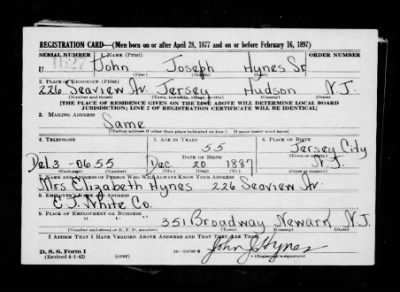 REGISTRATION CARD—(Men born on or after April 28, 1877 and on or before February 16, 1897)
SERIAL NUMBER 1. NAME (Print)
U John Joseph Hynes Sr
(First) (Middle) (Last)
2. PLACE OF RESIDENCE (Print)
226 Seaview Av. Jersey Hudson N.J.
(Number and street) (Town, township, village, or city) (County) (State)
[THE PLACE OF RESIDENCE GIVEN ON THE LINE ABOVE WILL DETERMINE LOCAL BOARD
JURISDICTION; LINE 2 OF REGISTRATION CERTIFICATE WILL BE IDENTICAL]
3. MAILING ADDRESS
Same
[Mailing address if other than place indicated on line 2. If same insert word same]
4. TELEPHONE 5. AGE IN YEARS 6. PLACE OF BIRTH
55 Jersey City
DATE OF BIRTH
Del 3-0655 Dec 20 1887 N.J.
(Exchange) (Number) (Mo.) (Day) (Yr.) (State or country)
7. NAME AND ADDRESS OF PERSON WHO WILL ALWAYS KNOW YOUR ADDRESS
Mrs Elizabeth Hynes 226 Seaview Av.
8. EMPLOYER'S NAME AND ADDRESS
E J. White Co.
9. PLACE OF EMPLOYMENT OR BUSINESS
351 Broadway Newark N.J.
(Number and street or R. F. D. number) (Town) (County) (State)
I AFFIRM THAT I HAVE VERIFIED ABOVE ANSWERS AND THAT THEY ARE TRUE.
D. S. S. Form 1
(Revised 4-1-42) (over)
John J. Hynes